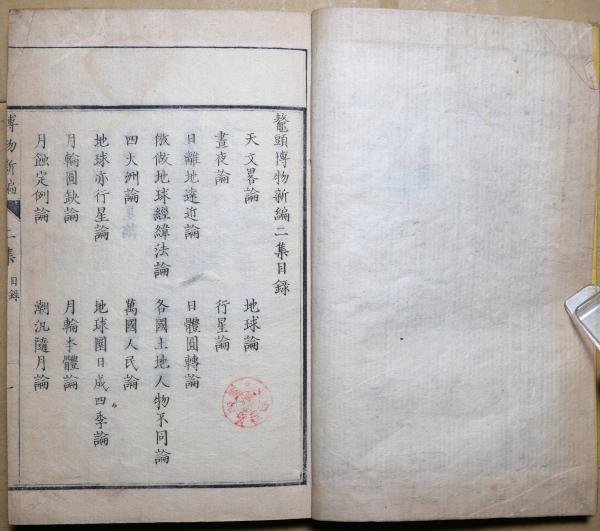 鼇頭博物新編二集目録
天文畧論
地球論
晝夜論
行星論
日離地遠近論
日體圓轉論
倣做地球經緯法論
各國土地人物不同論
四大洲論
萬國人民論
地球亦行星論
地球圜日成四季論
月輪圓缺論
月輪本體論
月蝕定例論
潮汛隨月論
博物新編
二集
目録
一